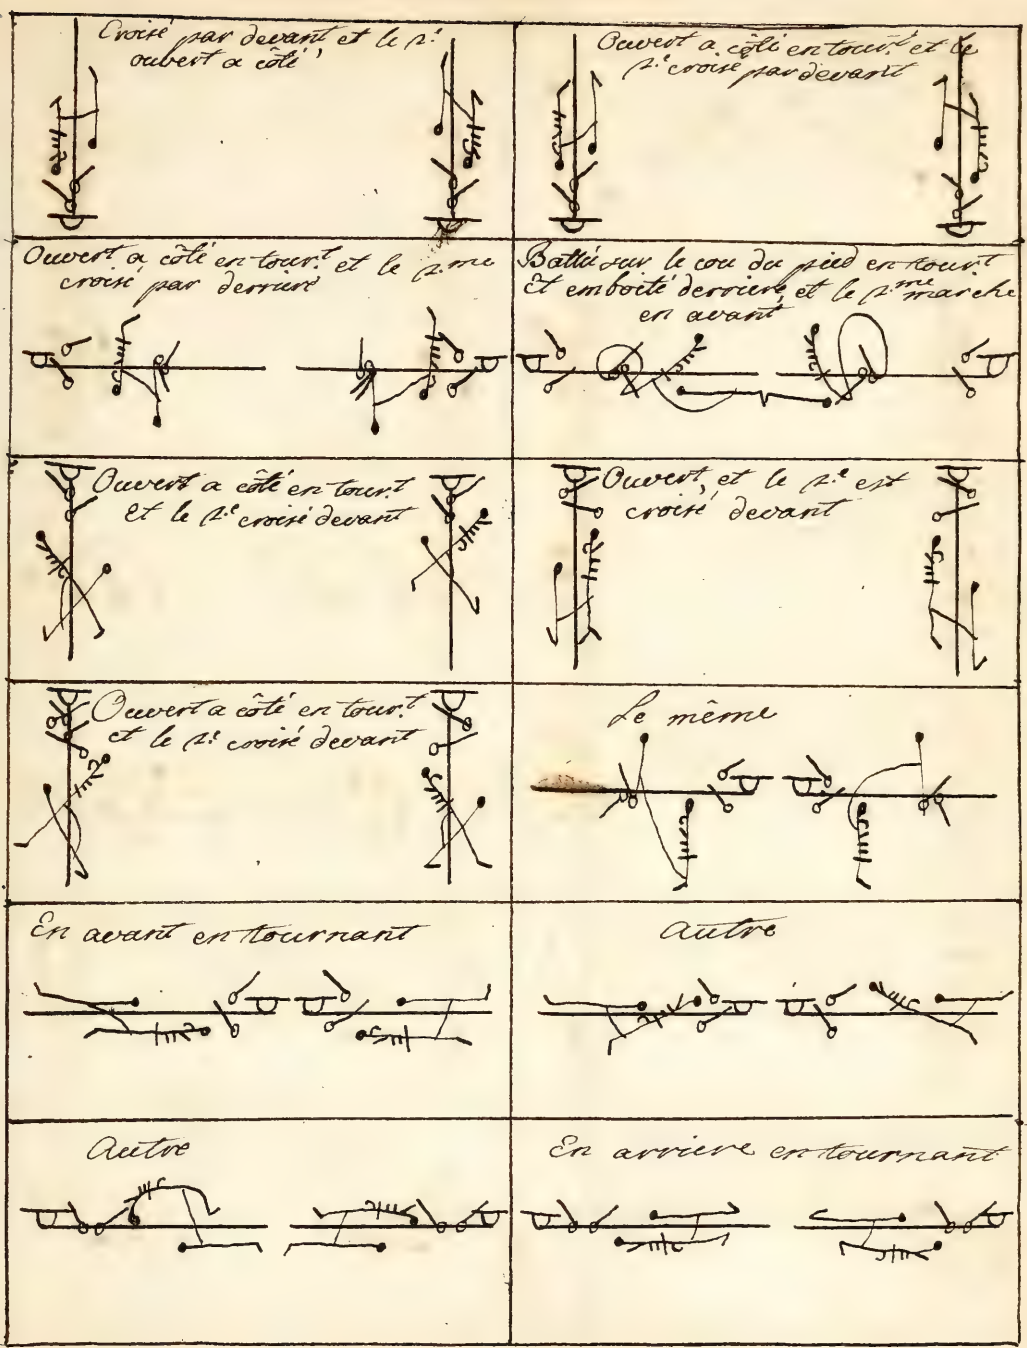 Croisé par devant et le 2.e
ouvert a côté
Ouvert a côté en tour.t et le
2.e croisé par devant
Ouvert a côté en tour.t et le 2.me
croisé par derriere
Battu sur le cou du pied en tour.t
Et emboité derriere, et le 2.me marche
en avant
Ouvert a côté en tour.t
et le 2.e croisé devant
Ouvert, et le 2.e est
croisé devant
Ouvert a côté en tour.t
et le 2.e croisé devant
Le même
En avant en tournant
Autre
Autre
En arriere en tournant